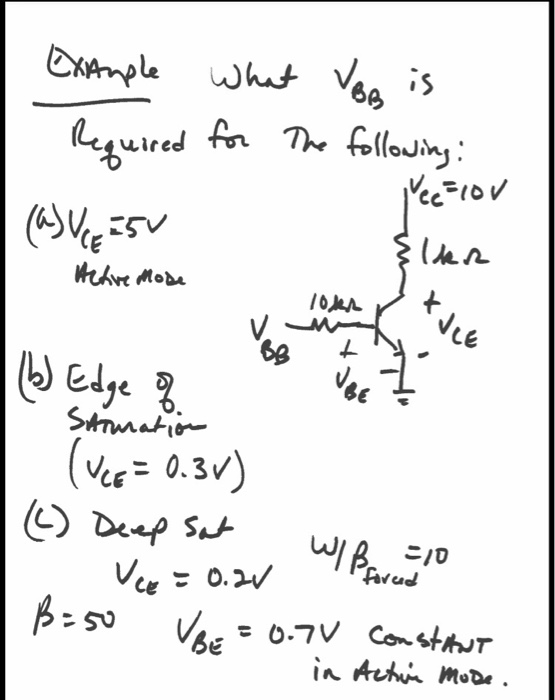 Example What V_BB is
Required for The following:
V_CC = 10V
(a) V_CE = 5V
Active Mode
1kΩ
10kΩ
+
V_CE
-
V_BB
+
V_BE
-
(b) Edge of
Saturation
(V_CE = 0.3V)
(C) Deep Sat
W/ β_forced = 10
V_CE = 0.2V
β = 50 V_BE = 0.7V Constant
in Active Mode.